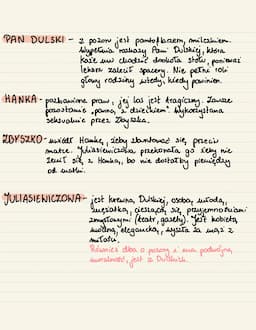 PAN DULSKI - z pozoru jest pantoflarzem, milczkiem.
Wypełnia rozkazy Pani Dulskiej, która
każe mu chodzić dookoła stołu, ponieważ
lekarz zalecił spacery. Nie pełni roli
głowy rodziny wtedy, kiedy powinien.
HANKA - pozbawiona praw, jej los jest tragiczny. Zawsze
pozostanie „panną z dzieckiem". Wykorzystana
seksualnie przez Zbyszka.
ZBYSZKO - uwiódł Hankę, żeby zbuntować się przeciw
matce. Juliasiewiczowa przekonała go żeby nie
żenił się z Hanką, bo nie dostałby pieniędzy
od matki.
JULIASIEWICZOWA - jest krewną Dulskiej, osobą młodą,
mężatką, cieszącą się przyjemnościami
zmysłowymi (teatr, gazety). Jest kobietą
modną, elegancką, wyszła za mąż z
miłości.
Również dba o pozory i ma podwójną
moralność, jest z Dulskich.